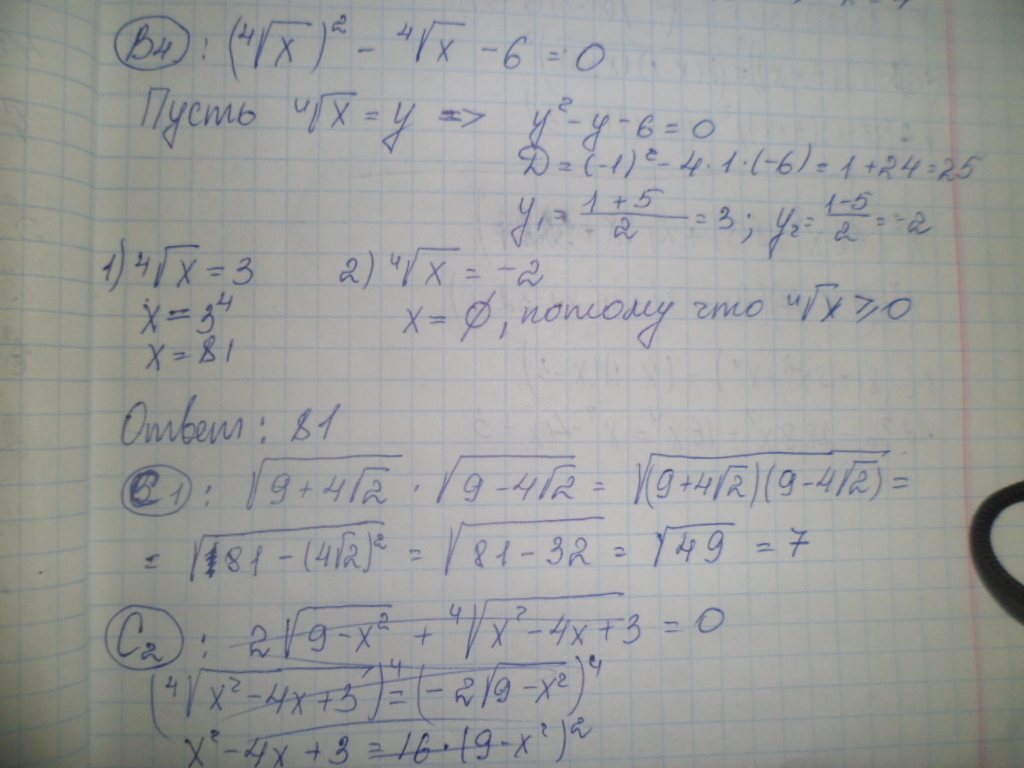 B4: (⁴√x)² - ⁴√x - 6 = 0
Пусть ⁴√x = y => y² - y - 6 = 0
D = (-1)² - 4·1·(-6) = 1 + 24 = 25
y₁ = (1+5)/2 = 3; y₂ = (1-5)/2 = -2
1) ⁴√x = 3 2) ⁴√x = -2
x = 3⁴ x = ∅, потому что ⁴√x ≥ 0
x = 81
Ответ: 81
C1: √(9+4√2) · √(9-4√2) = √((9+4√2)(9-4√2)) =
= √(81-(4√2)²) = √(81-32) = √49 = 7
C2: 2√(9-x²) + ⁴√(x²-4x+3) = 0
(⁴√(x²-4x+3))⁴ = (-2√(9-x²))⁴
x² - 4x + 3 = 16·(9-x²)²